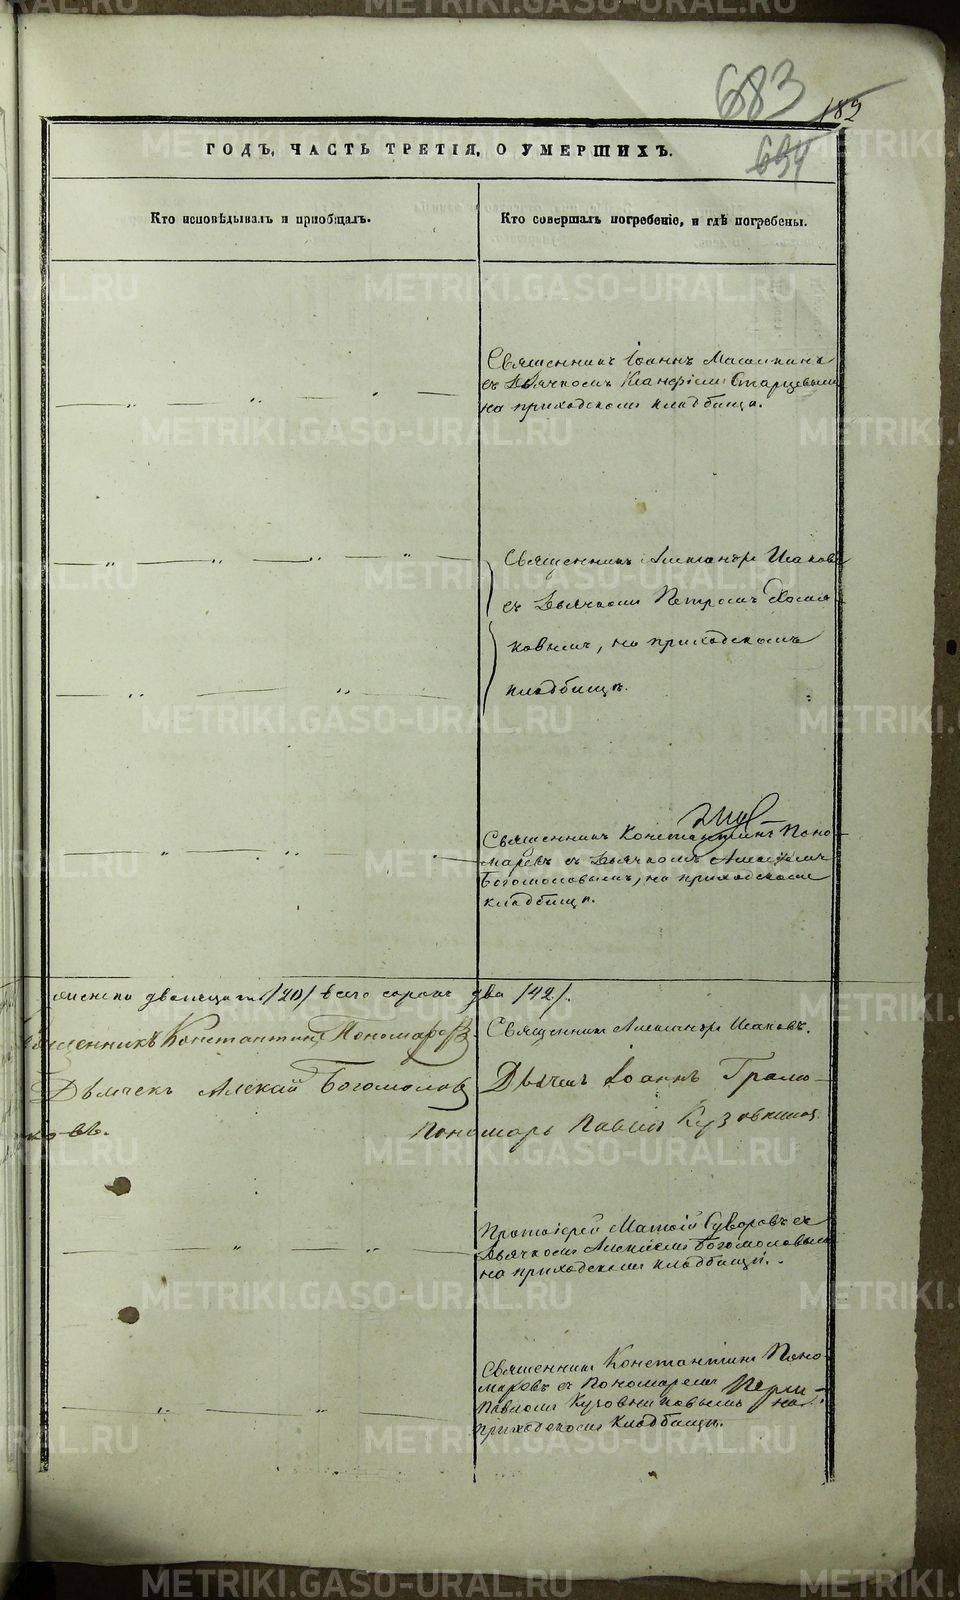 683
182
634
ГОДЪ, ЧАСТЬ ТРЕТІЯ, О УМЕРШИХЪ.
Кто исповѣдывалъ и пріобщалъ.
Кто совершалъ погребеніе, и гдѣ погребены.
Священникъ Іоаннъ
съ Дьячкомъ Старцевымъ
на приходскомъ кладбище.
Священникъ Александръ Исаковъ
съ Дьячкомъ Петромъ
ковымъ, на приходскомъ
кладбищѣ.
Священникъ Константинъ Поно-
маревъ съ Дьячкомъ Алексѣемъ
Богомоловымъ, на приходскомъ
кладбищѣ.
женска двадцать /20/ всего сорокъ два /42/.
Священникъ Константинъ Пономаревъ
Священникъ Александръ Исаковъ.
Дьячекъ Алексѣй Богомоловъ
Дьячекъ Іоаннъ Грамо-
ковъ.
Пономарь Павелъ Кузовниковъ
Протоіерей Матѳій Суворовъ съ
Дьячкомъ Алексѣемъ Богомоловымъ
на приходскомъ кладбищѣ.
Священникъ Константинъ Поно-
маревъ съ Пономаремъ
Павломъ Кузовниковымъ на
приходскомъ кладбищѣ.
METRIKI.GASO-URAL.RU